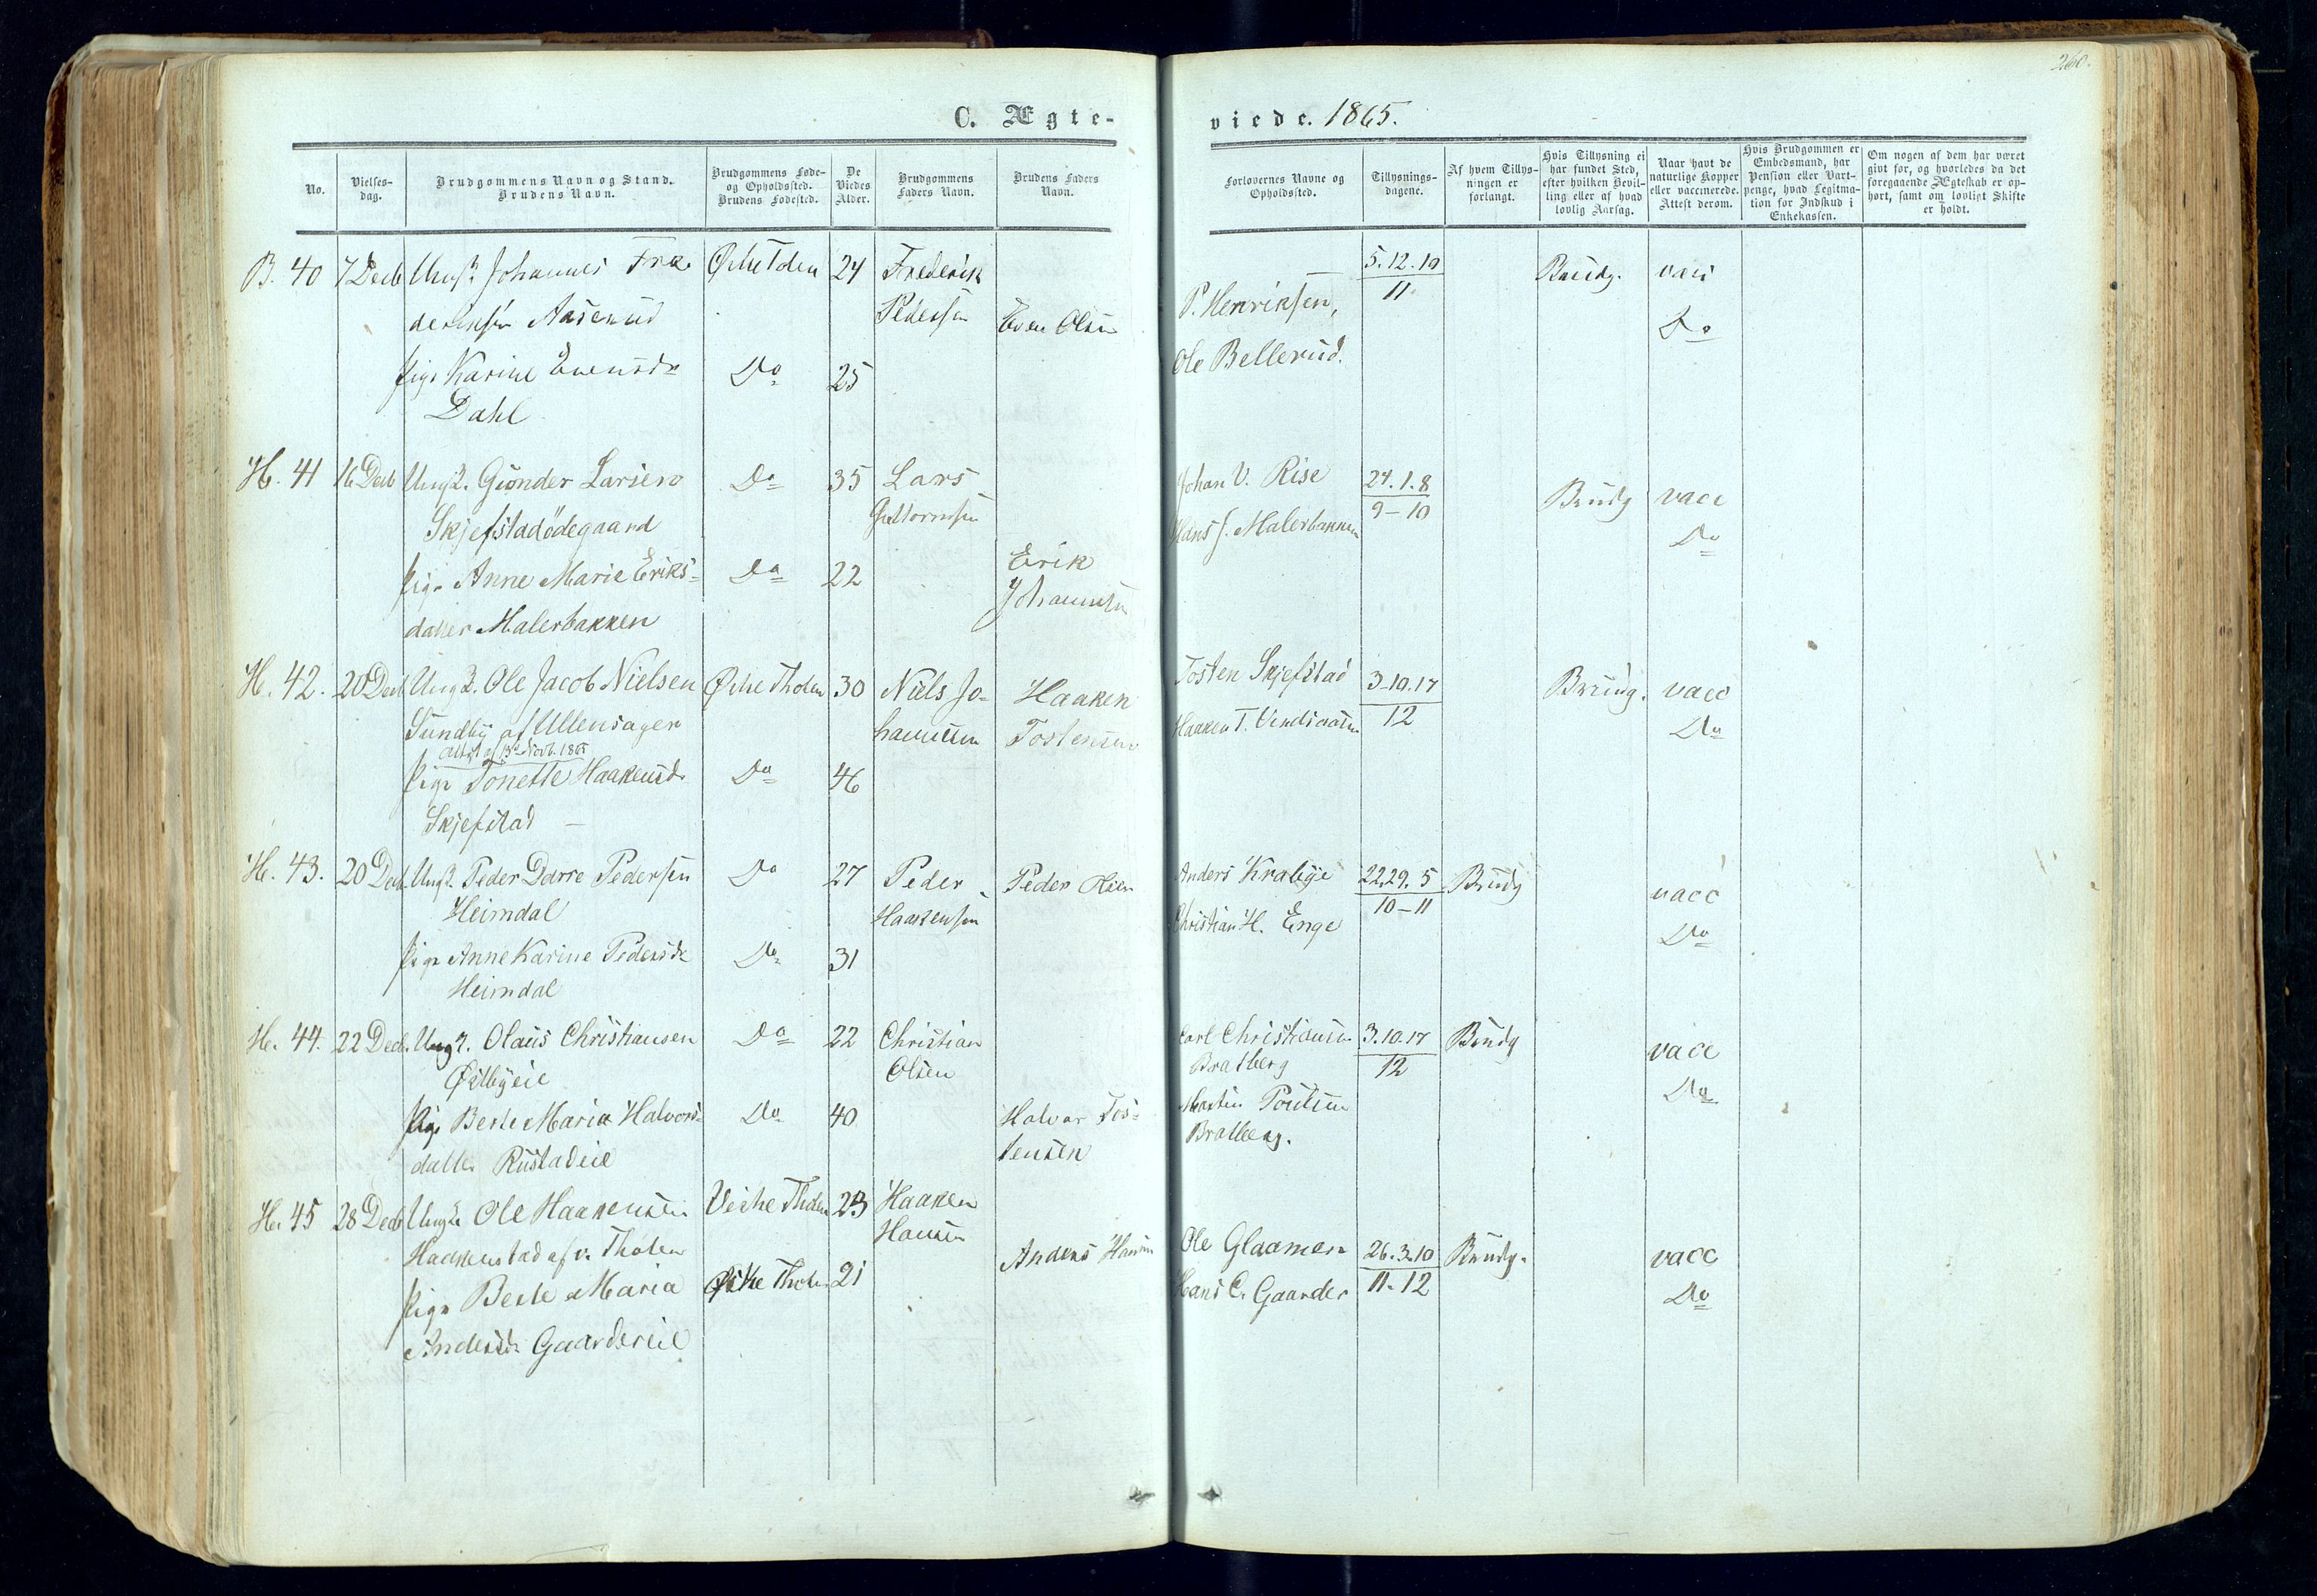 260.
C. Ægte-
viede. 1865.
No.
Vielses-
dag.
Brudgommens Navn og Stand.
Brudens Navn.
Brudgommens Føde-
og Opholdssted.
Brudens Fødested.
De
Viedes
Alder.
Brudgommens
Faders Navn.
Brudens Faders
Navn.
Forlovernes Navne og
Opholdssted.
Tillysnings-
dagene.
Af hvem Tillys-
ningen er
forlangt.
Hvis Tillysning ei
har fundet Sted,
efter hvilken Bevil-
ling eller af hvad
lovlig Aarsag.
Naar havt de
naturlige Kopper
eller vaccinerede.
Attest derom.
Hvis Brudgommen er
Embedsmand, har
Pension eller Vart-
penge, hvad Legitima-
tion for Indskud i
Enkekassen.
Om nogen af dem har været
givt før, og hvorledes da det
foregaaende Ægteskab er op-
hørt, samt om lovligt Skifte
er holdt.
B. 40 7 Decb Ungk. Johannes Fre- 24 Frederik
deriksen Aaserud Pedersen Even Olsen
Pige Karine Evensdr Do 25
Dahl
P. Henriksen, 5.12.19 Brudg. vacc
11 Do
Ole Bellerud.
H. 41 16 Decb Ungk. Gunder Larsen Do 35 Lars
Skjefstadødegaard Guttormsen
Pige Anne Marie Eriks- Do 22 Erik
datter Malerbakken Johannesen
Johan V. Rise 24.1.8 Brudg vacc
Hans J. Malerbakken 9-10 Do
H. 42. 20 Decb Ungk. Ole Jacob Nielsen Østre Tholen 30 Niels Jo- Haaken
Sundby af Ullensager hannesen Tostensen
Attest af 13de Novb. 1865
Pige Tonette Haakensd. Do 46
Skjefstad
Tosten Skjefstad 3-10.17 Brudg. vacc
Haaken T. 12 Do
H. 43. 20 Decb Ungk. Peder Dorre Pedersen Do 27 Peder Peder Olsen
Heimdal Haakensen
Pige Anne Karine Pedersdr Do 31
Heimdal
Anders Krabye 22.29.5 Brudg vacc
Christian H. Enge 10-11 Do
H. 44. 22 Decb. Ungk. Olaus Christiansen Do 22 Christian
Østbyeie Olsen
Pige Berte Maria Halvors- Do 40 Halvor Tos-
datter Rustadeie tensen
Carl Christiansen 3.10.17 Brudg vacc
Bratberg 12 Do
Martin Poulsen
Bratberg.
H. 45 28 Decb Ungk. Ole Haakensen Vestre Tholen 23 Haaken
Haakenstad af v. Tholen Hansen
Pige Berte Maria Østre Tholen 21 Anders Hansen
Andersdr Gaardereie
Ole Glaamen 26.3.10 Brudg. vacc
Hans C. Gaarder 11-12 Do